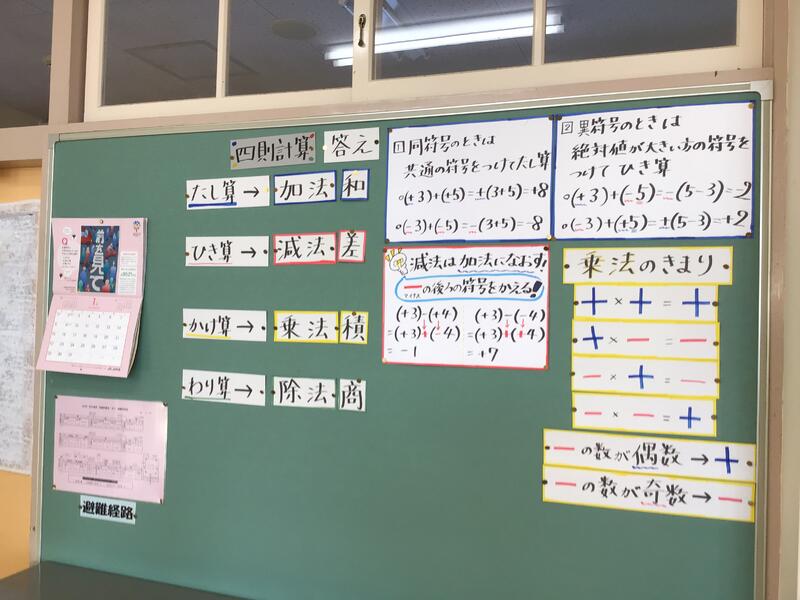 四則計算 答え
たし算→ 加法 和
ひき算→ 減法 差
かけ算→ 乗法 積
わり算→ 除法 商
1 同符号のときは
共通の符号をつけてたし算
○(+3)+(+5)=+(3+5)=+8
○(-3)+(-5)=-(3+5)=-8
2 異符号のときは
絶対値が大きい方の符号を
つけて ひき算
○(+3)+(-5)=-(5-3)=-2
○(-3)+(+5)=+(5-3)=+2
減法は加法になおす!
ーの後ろの符号をかえる!
マイナス
(+3)-(+4)
=(+3)+(-4)
=-1
(+3)-(-4)
=(+3)+(+4)
=+7
乗法のきまり
+×+=+
+×-=-
-×+=-
-×-=+
-の数が偶数→+
-の数が奇数→-
Q
前を見て
1
避難経路